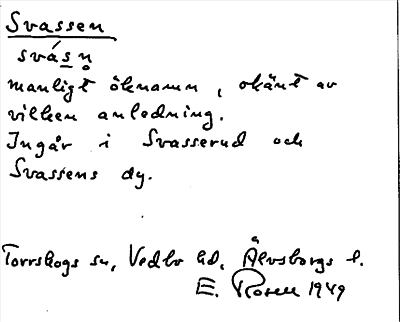 Svassen
svás̲n̥
manligt öknamn, okänt av
vilken anledning.
Ingår i Svasserud och
Svassens dy.
Torrskogs sn, Vedbo hd, Älvsborgs l.
E. Rosell 1949